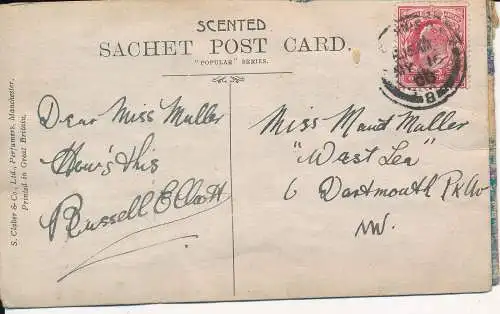 SCENTED
SACHET POST CARD.
"POPULAR" SERIES.
S. Claber & Co., Ltd., Perfumers, Manchester.
Printed in Great Britain.
Dear Miss Muller
How's this
Russell Elliott
Miss Maud Muller
"West Lea"
6 Dartmouth Pk Av
NW.